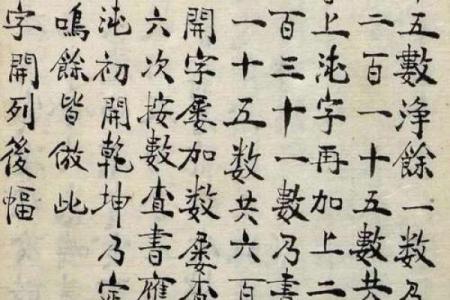 十五數浄餘一數乃
二百一十五數共
上沌字再加上二
百三十一數乃書
一十五数共六百
開字屡加数屡查
六次按數查書應
沌初開乾坤乃定
鳴餘皆倣此
字開列後幅